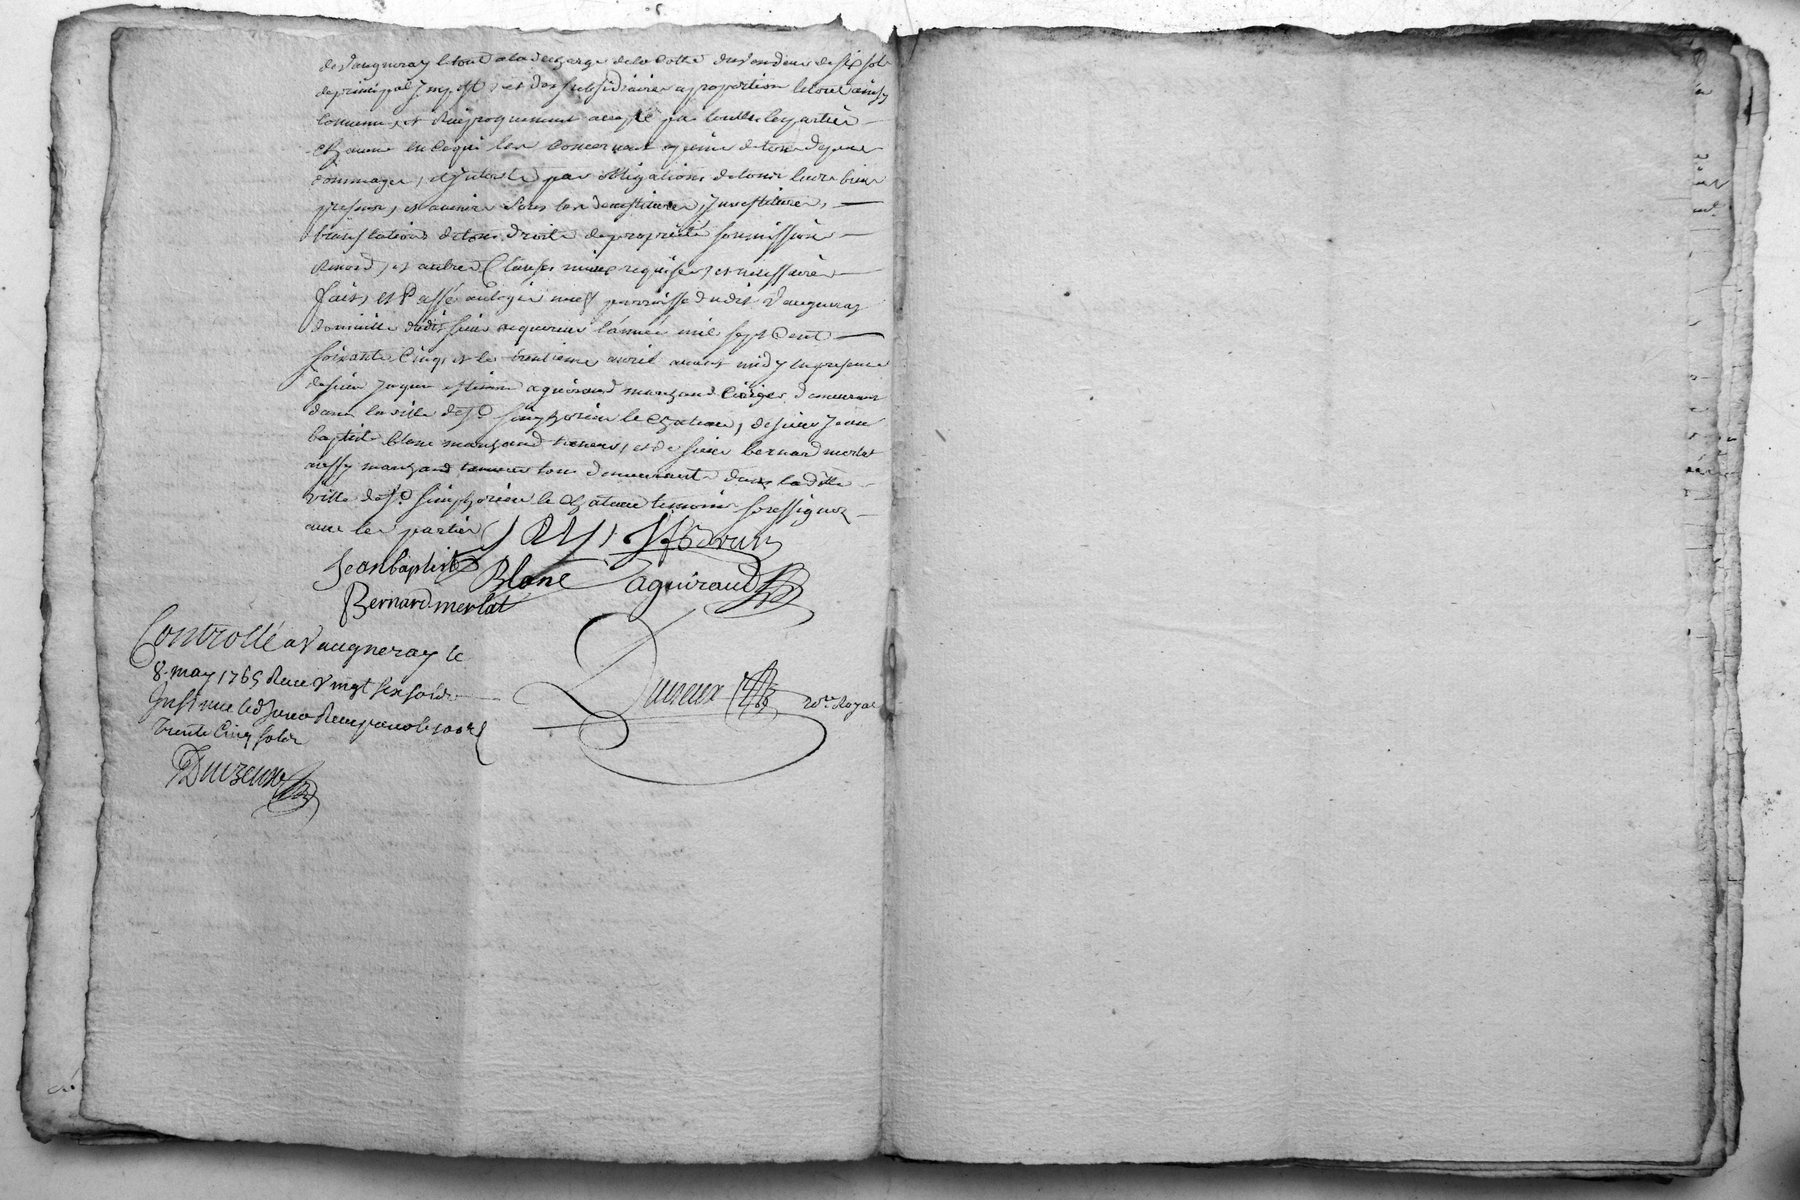 de Vaugneray le tout a la decharge de la Cotte du vendeur de six sols
de principal impost, et don subsidiaires a proportion le tout ainsy
convenu, et reciproquement accepté par touttes les parties
chacune en ce qui les concernant a peine de tous depens
dommages, et interets par obligations de tous leurs biens
presens, et avenir sous les devestitures, investitures,
translations de tous droits de propriété soumissions
renond, et autres Clauses requises, et necessaires
fait, et Passé au logis neuf parroisse dudit Vaugneray
domicille dudit sieur acquereur l'année mil sept Cent
soixante Cinq, et le trentieme avril avant midy en presence
de sieur Jaque estienne aguiraud marchand Cirier demeurant
dans la ville de St. simphorien le chateau, de sieur Jean
baptiste blanc marchand taneur, et de sieur bernard merlat
aussy marchand tanneur tous demeurants dans la ditte
ville de St. simphorien le chateau temoins soussignez
avec les parties
Jean baptiste Blanc aguiraud
Bernard merlat
Controllé a Vaugneray le
8. may 1765 Receu Vingt six sols
Insinué led. jour Receu pour le 100e
trente Cinq sols
Duizeux Royal
Duizeux